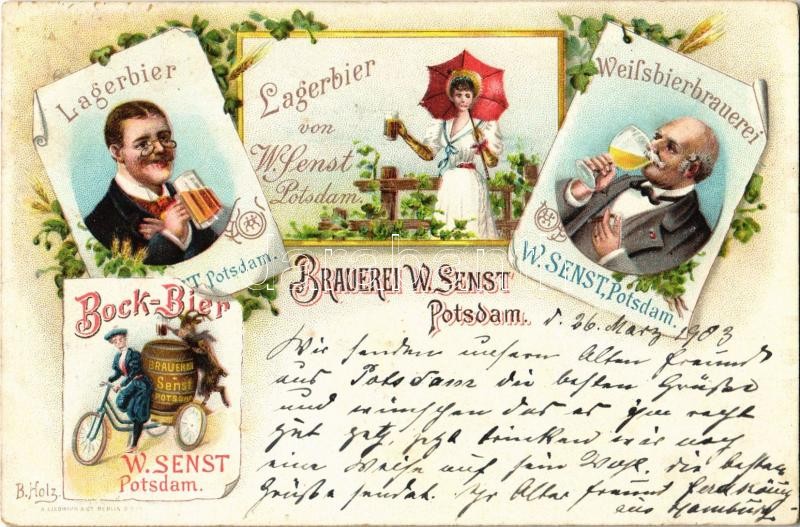 Lagerbier
Lagerbier
von
W. Senst
Potsdam.
Weißsbierbrauerei
T, Potsdam.
W. SENST, Potsdam.
BRAUEREI W. SENST
Potsdam.
Bock-Bier
BRAUEREI
Senst
POTSDAM
W. SENST
Potsdam.
B. Holz.
d. 26. März 1903
Wir senden unsern Alten Freund
aus Potsdam die besten Grüße
und wünschen das es ihm recht
gut geht, jetzt trinken wir noch
eine Weiße auf sein Wohl, die besten
Grüße sendet. Ihr Alter Freund
aus Hamburg